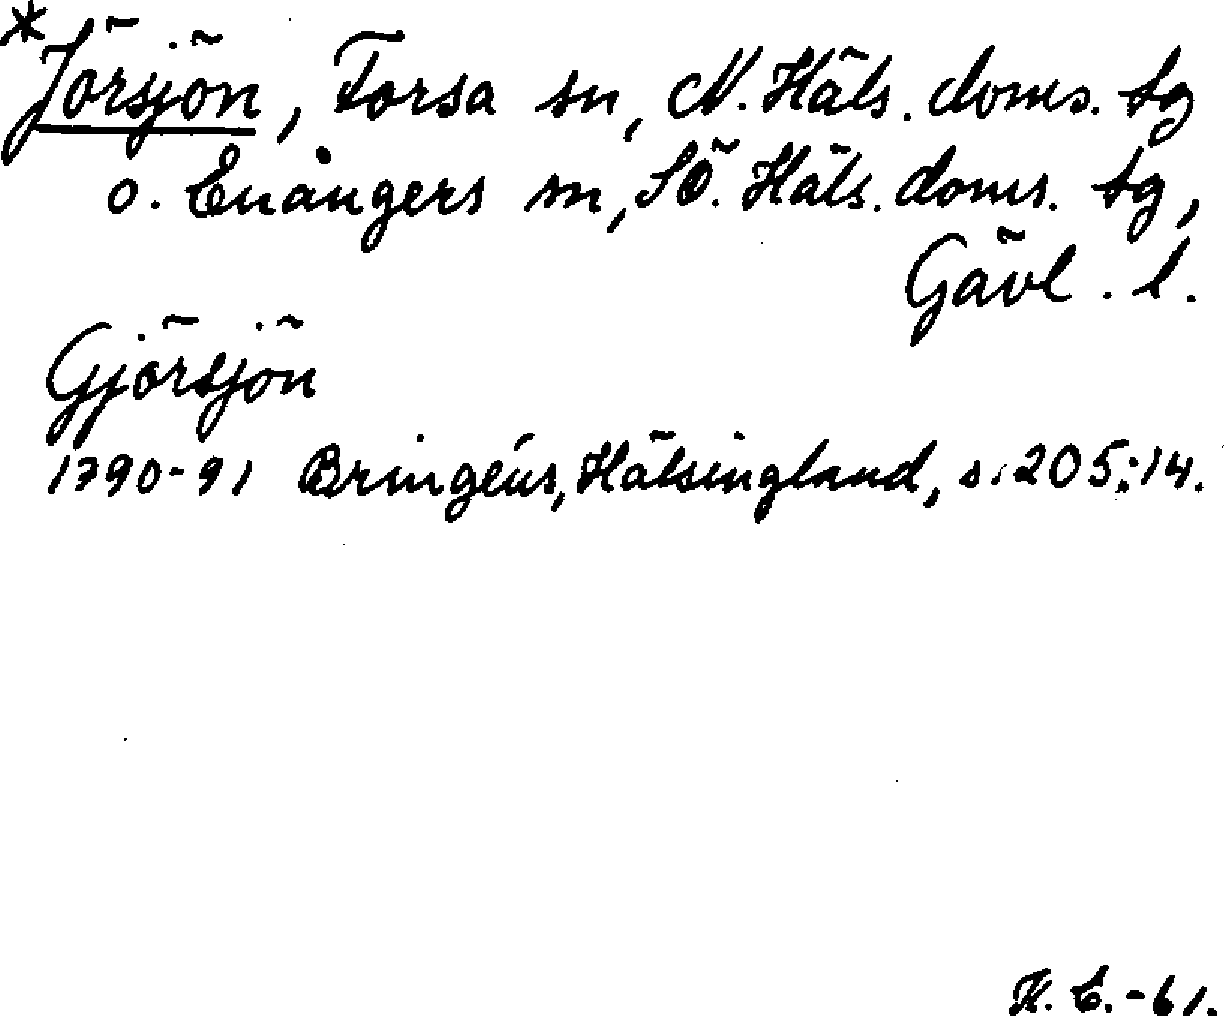 *Jörsjön, Forsa sn, N. Häls. doms. tg
o. Enångers sn, SÖ. Häls. doms. tg,
Gävl. l.
Gjörsjön
1790-91 Bringéus, Hälsingland, s. 205:14.
K. C. -61.